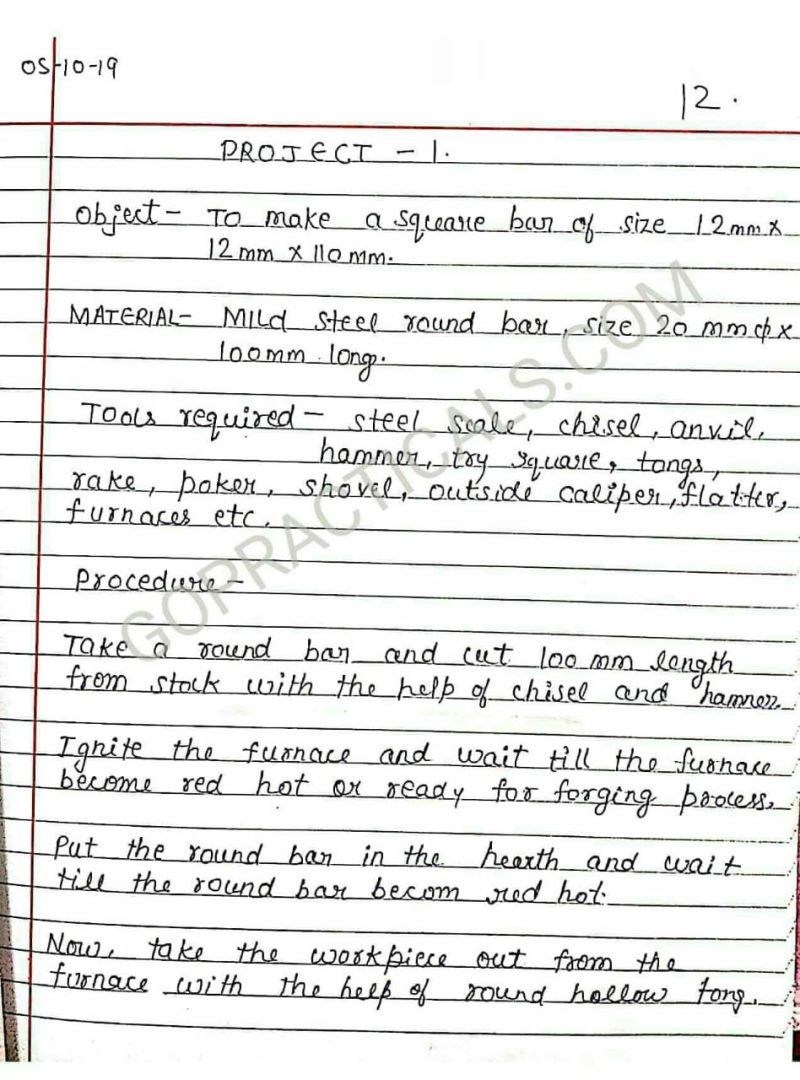 05-10-19
12.
PROJECT - 1.
Object - To make a square bar of size 12mm x
12 mm x 110 mm.
MATERIAL - Mild steel round bar, size 20 mm ф x
100mm long.
Tools required - steel scale, chisel, anvil,
hammer, try square, tongs,
rake, poker, shovel, outside caliper, flatter,
furnaces etc.
Procedure -
Take a round bar and cut 100 mm length
from stock with the help of chisel and hammer.
Ignite the furnace and wait till the furnace
become red hot or ready for forging process.
Put the round bar in the hearth and wait
till the round bar becom red hot.
Now, take the workpiece out from the
furnace with the help of round hollow tong.
GOPRACTICALS.COM